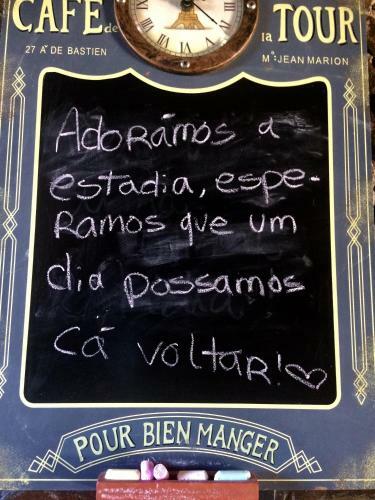 CAFÉ de la TOUR
27 A' DE BASTIEN
Mº: JEAN MARION
Adorámos a
estadia, espe-
Ramos que um
dia possamos
cá voltar!♡
POUR BIEN MANGER